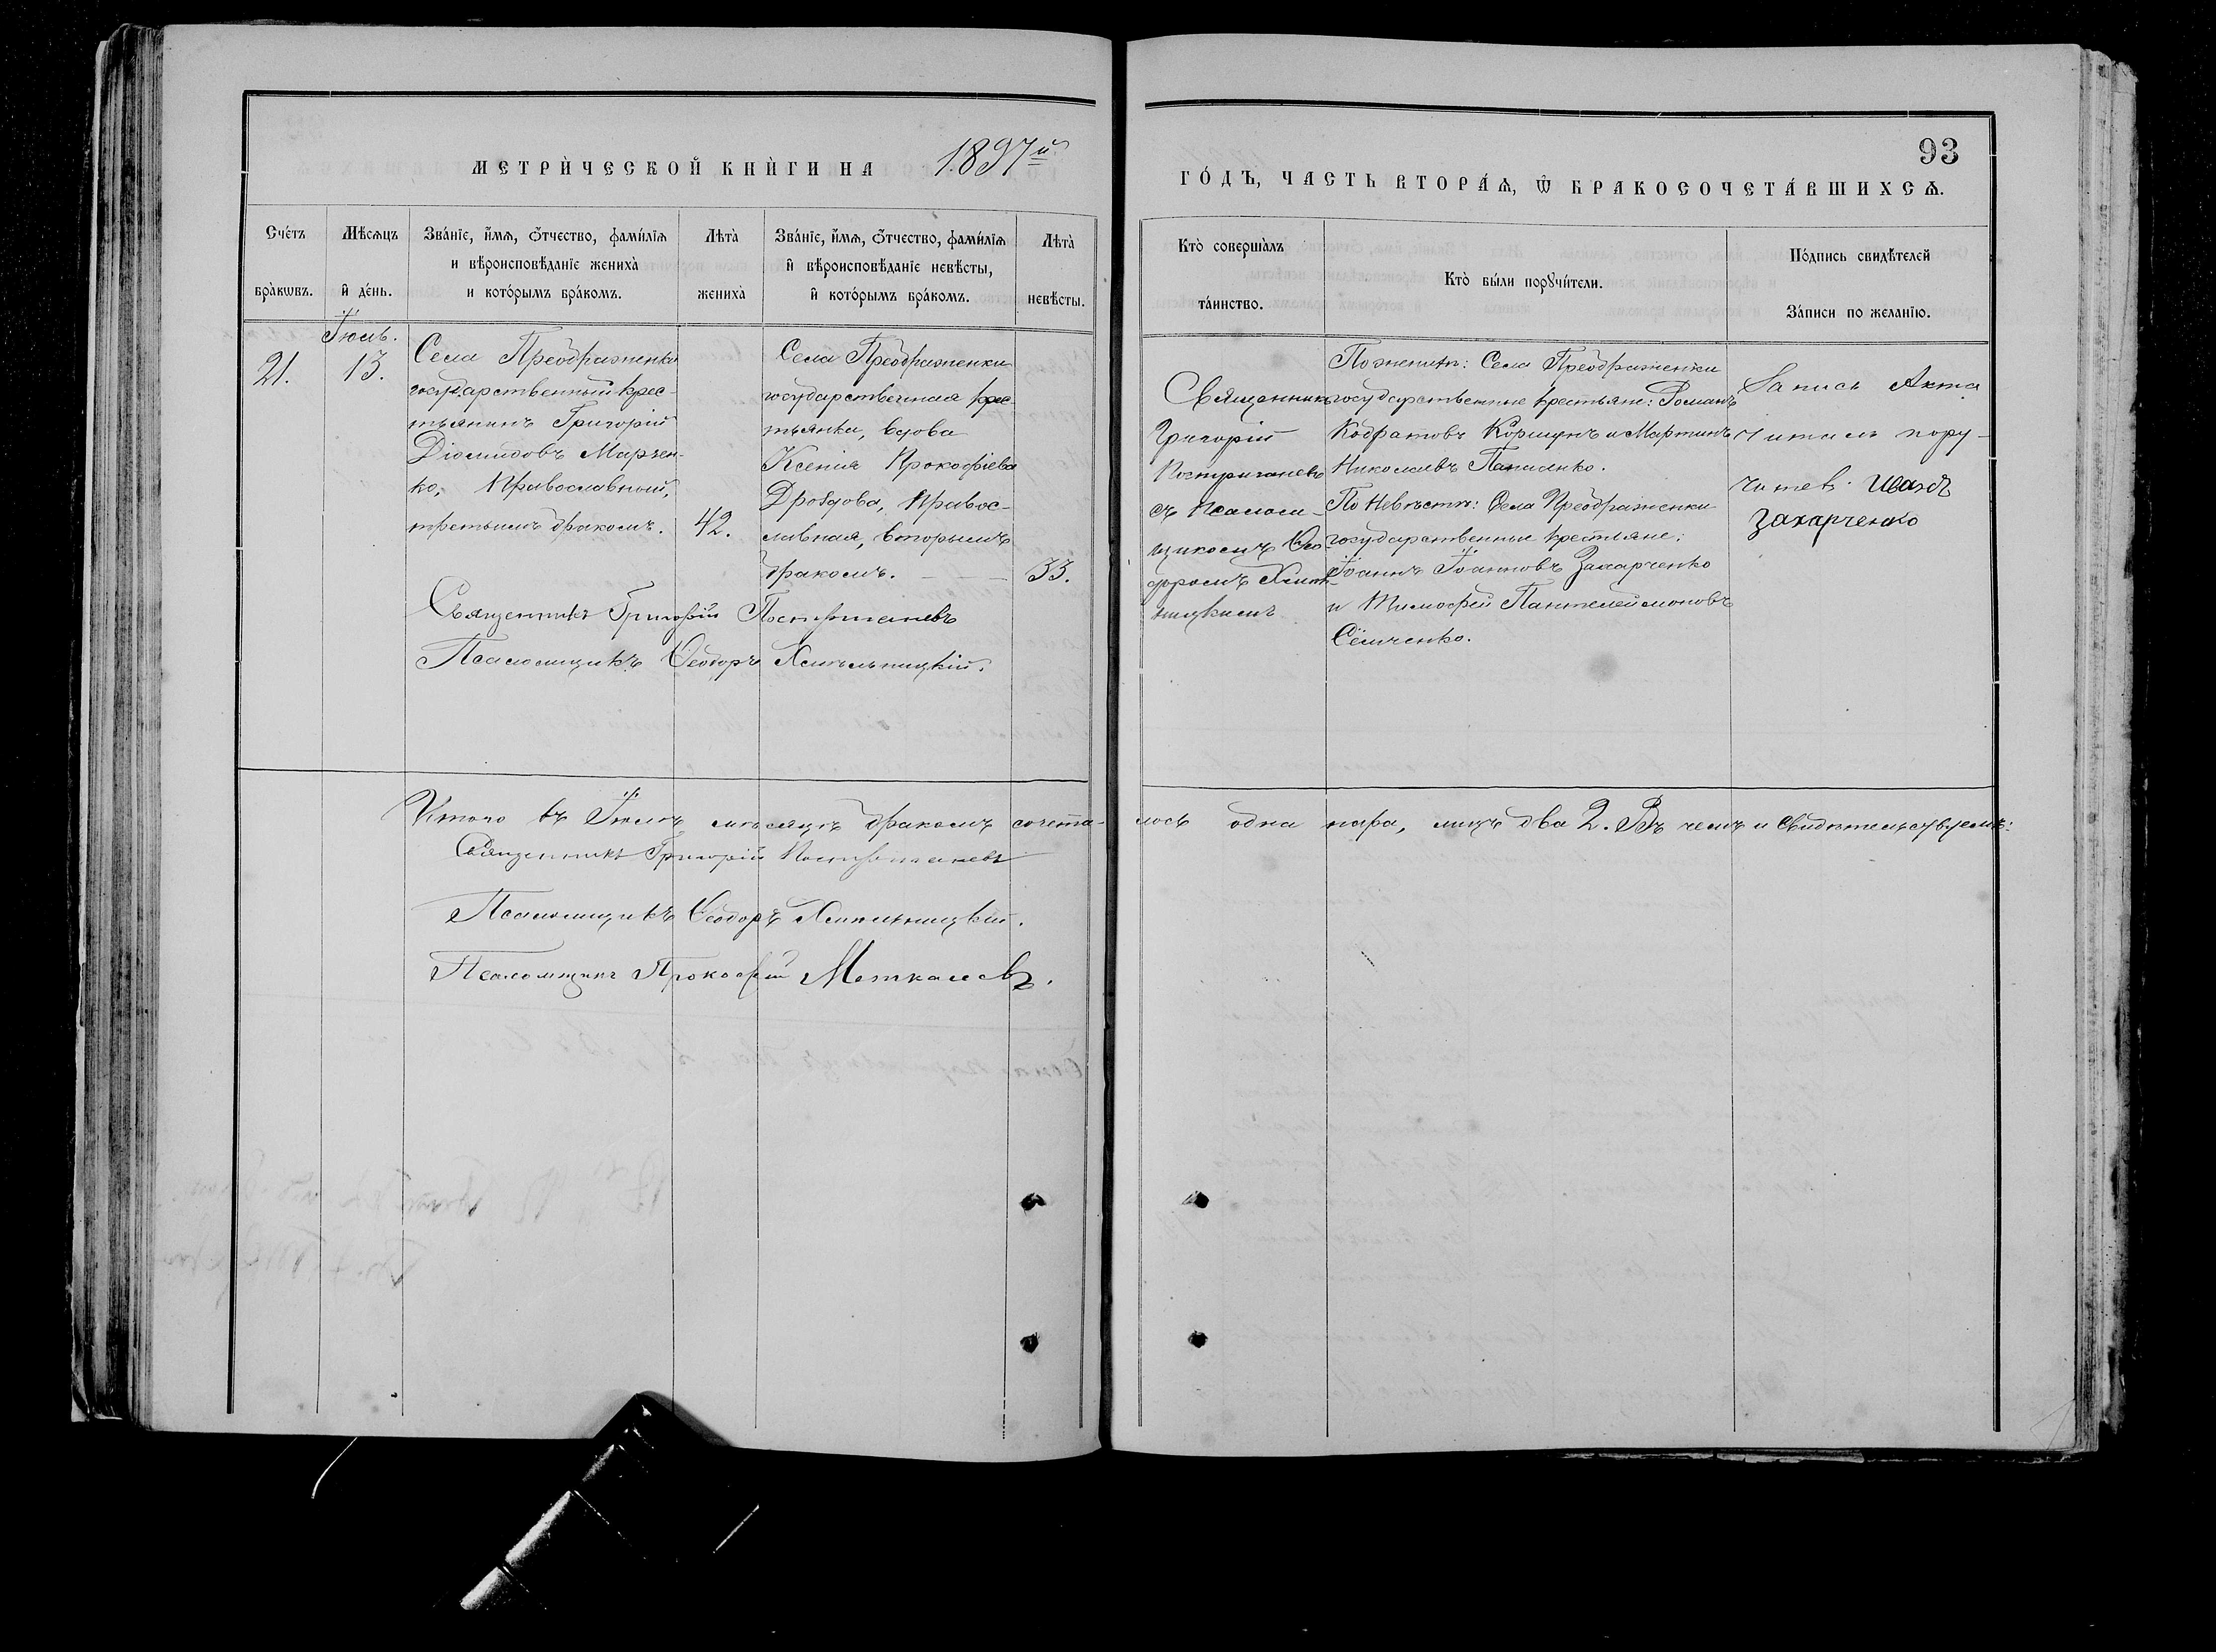 МЕТРИ́ЧЕСКОЙ КНИ́ГИ НА 1897й
93
ГО́ДЪ, ЧАСТЬ ВТОРА́Ѧ, Ѡ҃ БРАКОСОЧЕТА́ВШИХСѦ.
Сче́тъ бра̀кѡвъ.
Мѣ́сѧцъ и҆ де́нь.
Зва́нїе, и҆́мѧ, ѻ҆́тчество, фами́лїѧ
и вѣроисповѣ́данїе жениха̀
и кото́рымъ бра́комъ.
Лѣта̀ жениха̀
Зва́нїе, и҆́мѧ, ѻ҆́тчество, фами́лїѧ
и҆ вѣроисповѣ́данїе невѣ́сты,
и҆ кото́рымъ бра́комъ.
Лѣта̀ невѣ́сты.
Кто̀ соверша́лъ
та́инство.
Кто̀ бы́ли порꙋчи́тели.
По́дпись свидѣ́телей
За́писи по жела́нїю.
Іюль.
21.
13.
Села Преображенки
государственный крес-
тьянинъ Григорій
Діомидовъ Марчен-
ко, Православный,
третьимъ бракомъ.
42.
Села Преображенки
государственная крес-
тьянка, вдова
Ксенія Прокофіева
Дроздова, Правос-
лавная, вторымъ
бракомъ.
33.
Священникъ Григорій
Псаломщикъ Ѳеодоръ Хмѣльницкій.
Священникъ
Григорій
съ Псалом-
щикомъ Ѳео-
доромъ Хмѣль-
ницкимъ
По женихѣ: Села Преображенки
государственные крестьяне: Романъ
Кодратовъ Коршунъ и Мартинъ
Николаевъ
По Невѣстѣ: Села Преображенки
государственные крестьяне:
Іоаннъ Іоанновъ Захарченко
и Тимофей Пантелеймоновъ
Сёмченко.
Запись Акта
читалъ пору-
Иванъ
Захарченко
Итого въ Іюлѣ мѣсяцѣ бракомъ сочета-
лось одна пара, лицъ два 2. Въ чемъ и свидѣтельствуемъ:
Священникъ Григорій
Псаломщикъ Ѳеодоръ Хмѣльницкій.
Псаломщикъ Прокофій Меткалевъ.